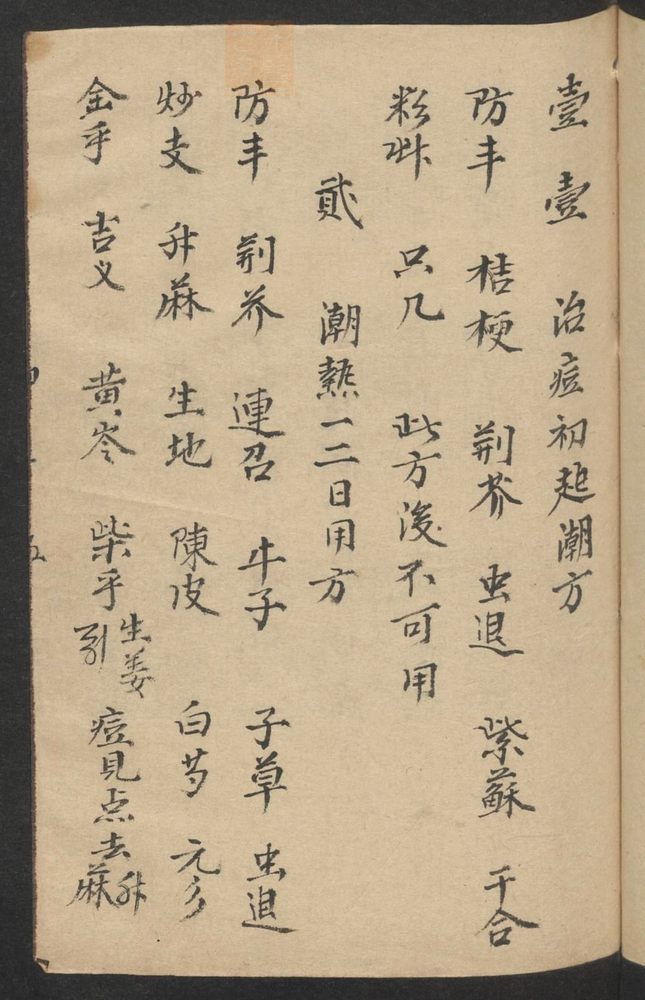 壹壹 治痘初起潮方
防丰 桔梗 荆芥 虫退 紫蘇 干合
粉艸 只几 此方後不可用
貳 潮熱一二日用方
防丰 荆芥 連召 牛子 子草 虫退
炒支 升麻 生地 陳皮 白芍 元多
金乎 吉义 黄岑 柴乎 生姜引 痘見点去升麻